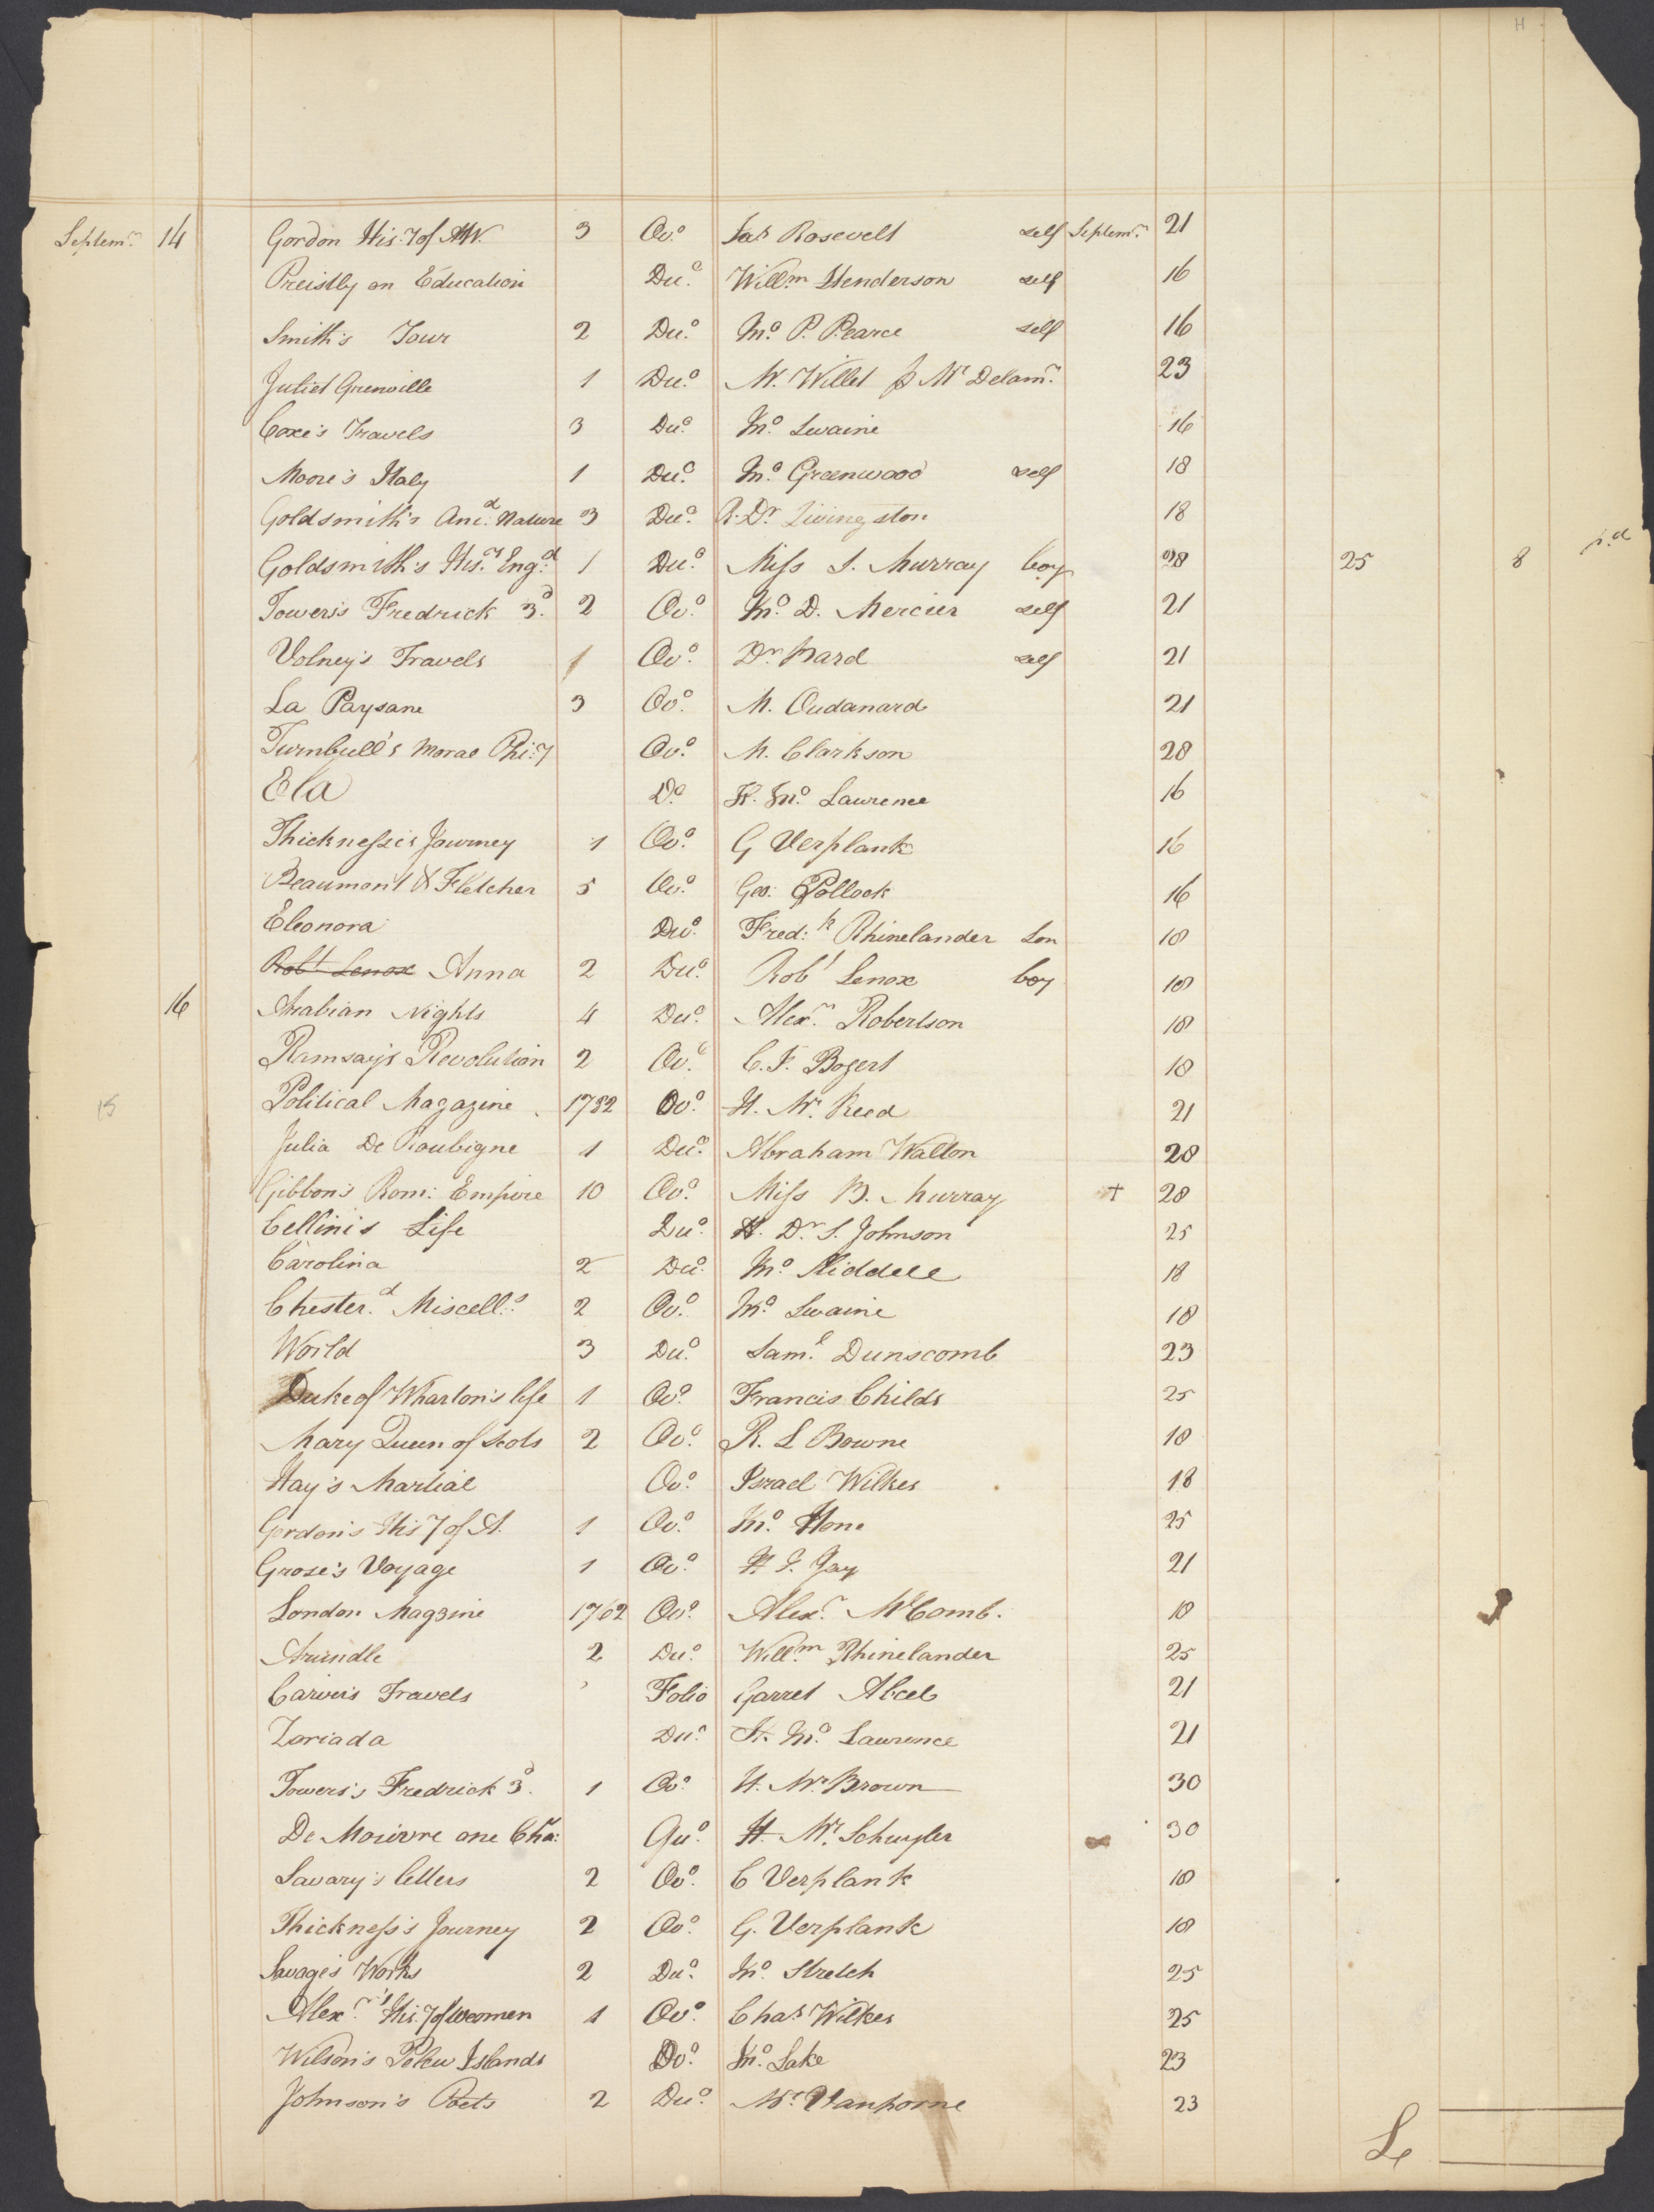 H
Septem.r 14 Gordon His.y of AW. 3 Ov.o Jas Rosevelt self Septem.r 21
Preistly on Education Du.o Will.m Henderson self 16
Smith's Tour 2 Du.o Jno. P. Pearce self 16
Juliet Grenville 1 Du.o M. Willet p Mr Delam.r 23
Coxe's Travels 3 Du.o Jno. Swaine 16
Moore's Italy 1 Du.o Jno. Greenwood self 18
Goldsmith's Ani.d Nature 3 Du.o R. Dr Livingston 18
Goldsmith's His.y Eng.d 1 Du.o Miss S. Murray boy 28 25 8 p.d
Towers's Fredrick 3.d 2 Ov.o Jno. D. Mercier self 21
Volney's Travels 1 Ov.o Dr. Bard self 21
La Paysane 3 Ov.o M. Oudanard 21
Turnbull's Moral Phi:y Ov.o M. Clarkson 28
Ela D.o H. Jno. Lawrence 16
Thicknesse's Journey 1 Ov.o G Verplank 16
Beaumont & Fletcher 5 Ov.o Geo: Pollock 16
Eleonora Du.o Fred:k Rhinelander Son 18
Robt Lenox Anna 2 Du.o Robt Lenox boy 18
16 Arabian Nights 4 Du.o Alex.r Robertson 18
Ramsay's Revolution 2 Ov.o C. J. Bogert 18
15 Political Magazine 1782 Ov.o H. Mr. Reed 21
Julia De Roubigne 1 Du.o Abraham Walton 28
Gibbon's Rom: Empire 10 Ov.o Miss B. Murray + 28
Cellini's Life Du.o H. Dr. S. Johnson 25
Carolina 2 Du.o Jno. Riddell 18
Chester.d Miscell.s 2 Ov.o Jno. Swaine 18
World 3 Du.o Sam.l Dunscomb 23
Duke of Wharton's life 1 Ov.o Francis Childs 25
Mary Queen of Scots 2 Ov.o R. L Bowne 18
Hay's Martial Ov.o Israel Wilkes 18
Gordon's His y of A. 1 Ov.o Jno. Hone 25
Grose's Voyage 1 Ov.o H J. Jay 21
London Magzine 1762 Ov.o Alex.r McComb. 18
Arundle 2 Du.o Will.m Rhinelander 25
Carver's Travels Folio Garret Abeel 21
Zoriada Du.o H. Jno. Lawrence 21
Towers's Fredrick 3.d 1 Ov.o H. Mr Brown 30
De Moivre one Cha: Qu.o H. Mr. Schuyler 30
Savary's letters 2 Ov.o C Verplank 18
Thickness's Journey 2 Ov.o G. Verplank 18
Savage's Works 2 Du.o Jno. Stretch 25
Alex.r's His.y of Weomen 1 Ov.o Chas Wilkes 25
Wilson's Pelew Islands Do.o Jno. Lake 23
Johnson's Poets 2 Du.o Mr. Vanhorne 23